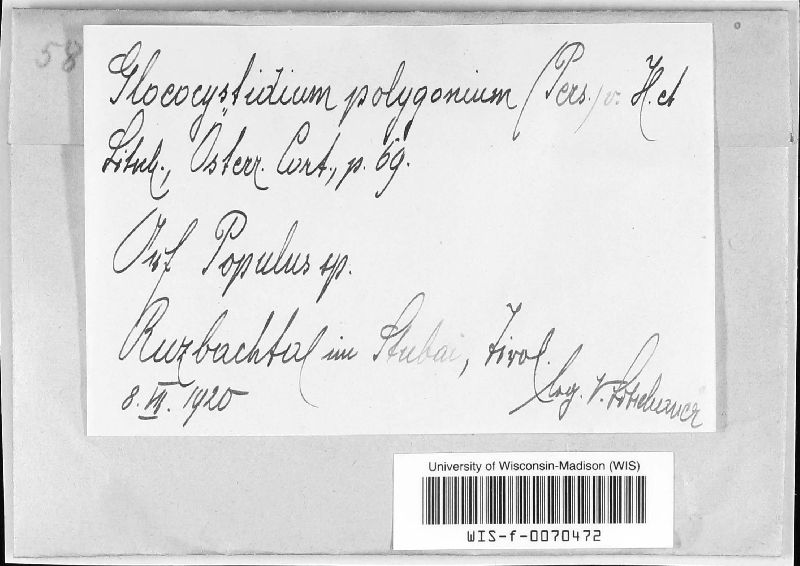 58
Gloeocystidium polygonium (Pers.) v. H. et
Litsch., Österr. Cort., p. 69.
Auf Populus sp.
Ruzbachtal im Stubai, Tirol.
8. VIII. 1920
leg. V. Litschauer
University of Wisconsin-Madison (WIS)
WIS-f-0070472